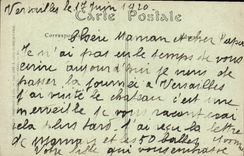 Versailles le 17 juin 1920.
Carte Postale
Correspon
Chère Maman et cher Papa
Je n'ai pas eu le temps de vous
écrire aujourd'hui je viens de
passer la journée à Versailles
j'ai visité le château c'est une
merveille je vous raconterai
cela plus tard. J'ai reçu la lettre
de maman et les 50 balles
Votre fille qui vous embrasse